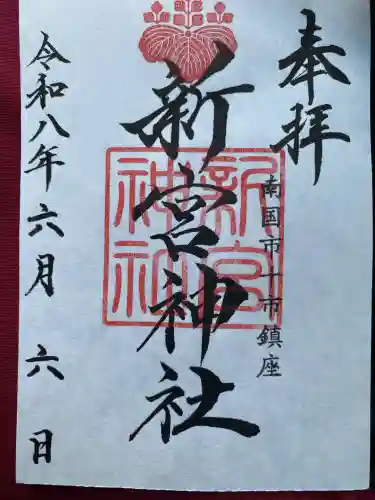 奉拝
南国市十市鎮座
新宮神社
新宮
神社
令和八年六月六日